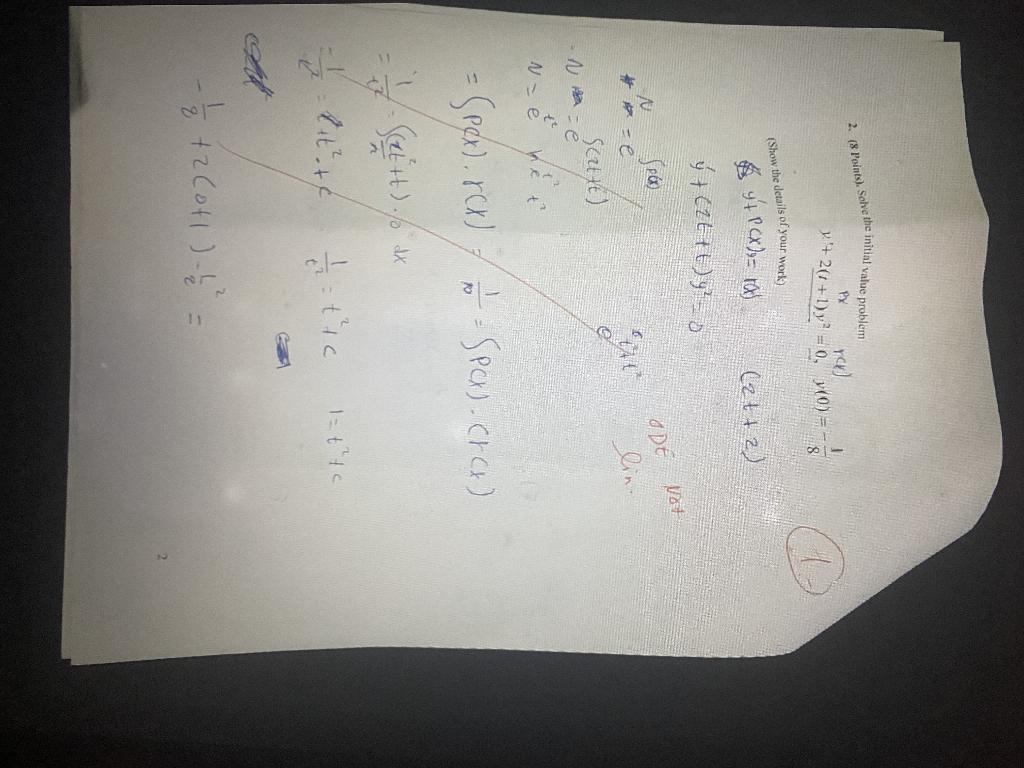 2. (8 Points). Solve the initial value problem
Px r(x)
y' + 2(t + 1)y² = 0, y(0) = -1/8
1-
(Show the details of your work)
y'+ P(x)y = r(x) (2t+2)
y' + (2t+t)y² = 0
ODE Not
lin.
N = e ∫P(x)
N = e ∫(2t+t)
N = e t²
= ∫P(x). r(x) = 1/N = ∫P(x) . (r(x)
= ∫(2t²+t).0 dx
+ c 1/t² = t²+c 1=t²+c
-1/8 + 2(0+1) -1/8 ² =
2